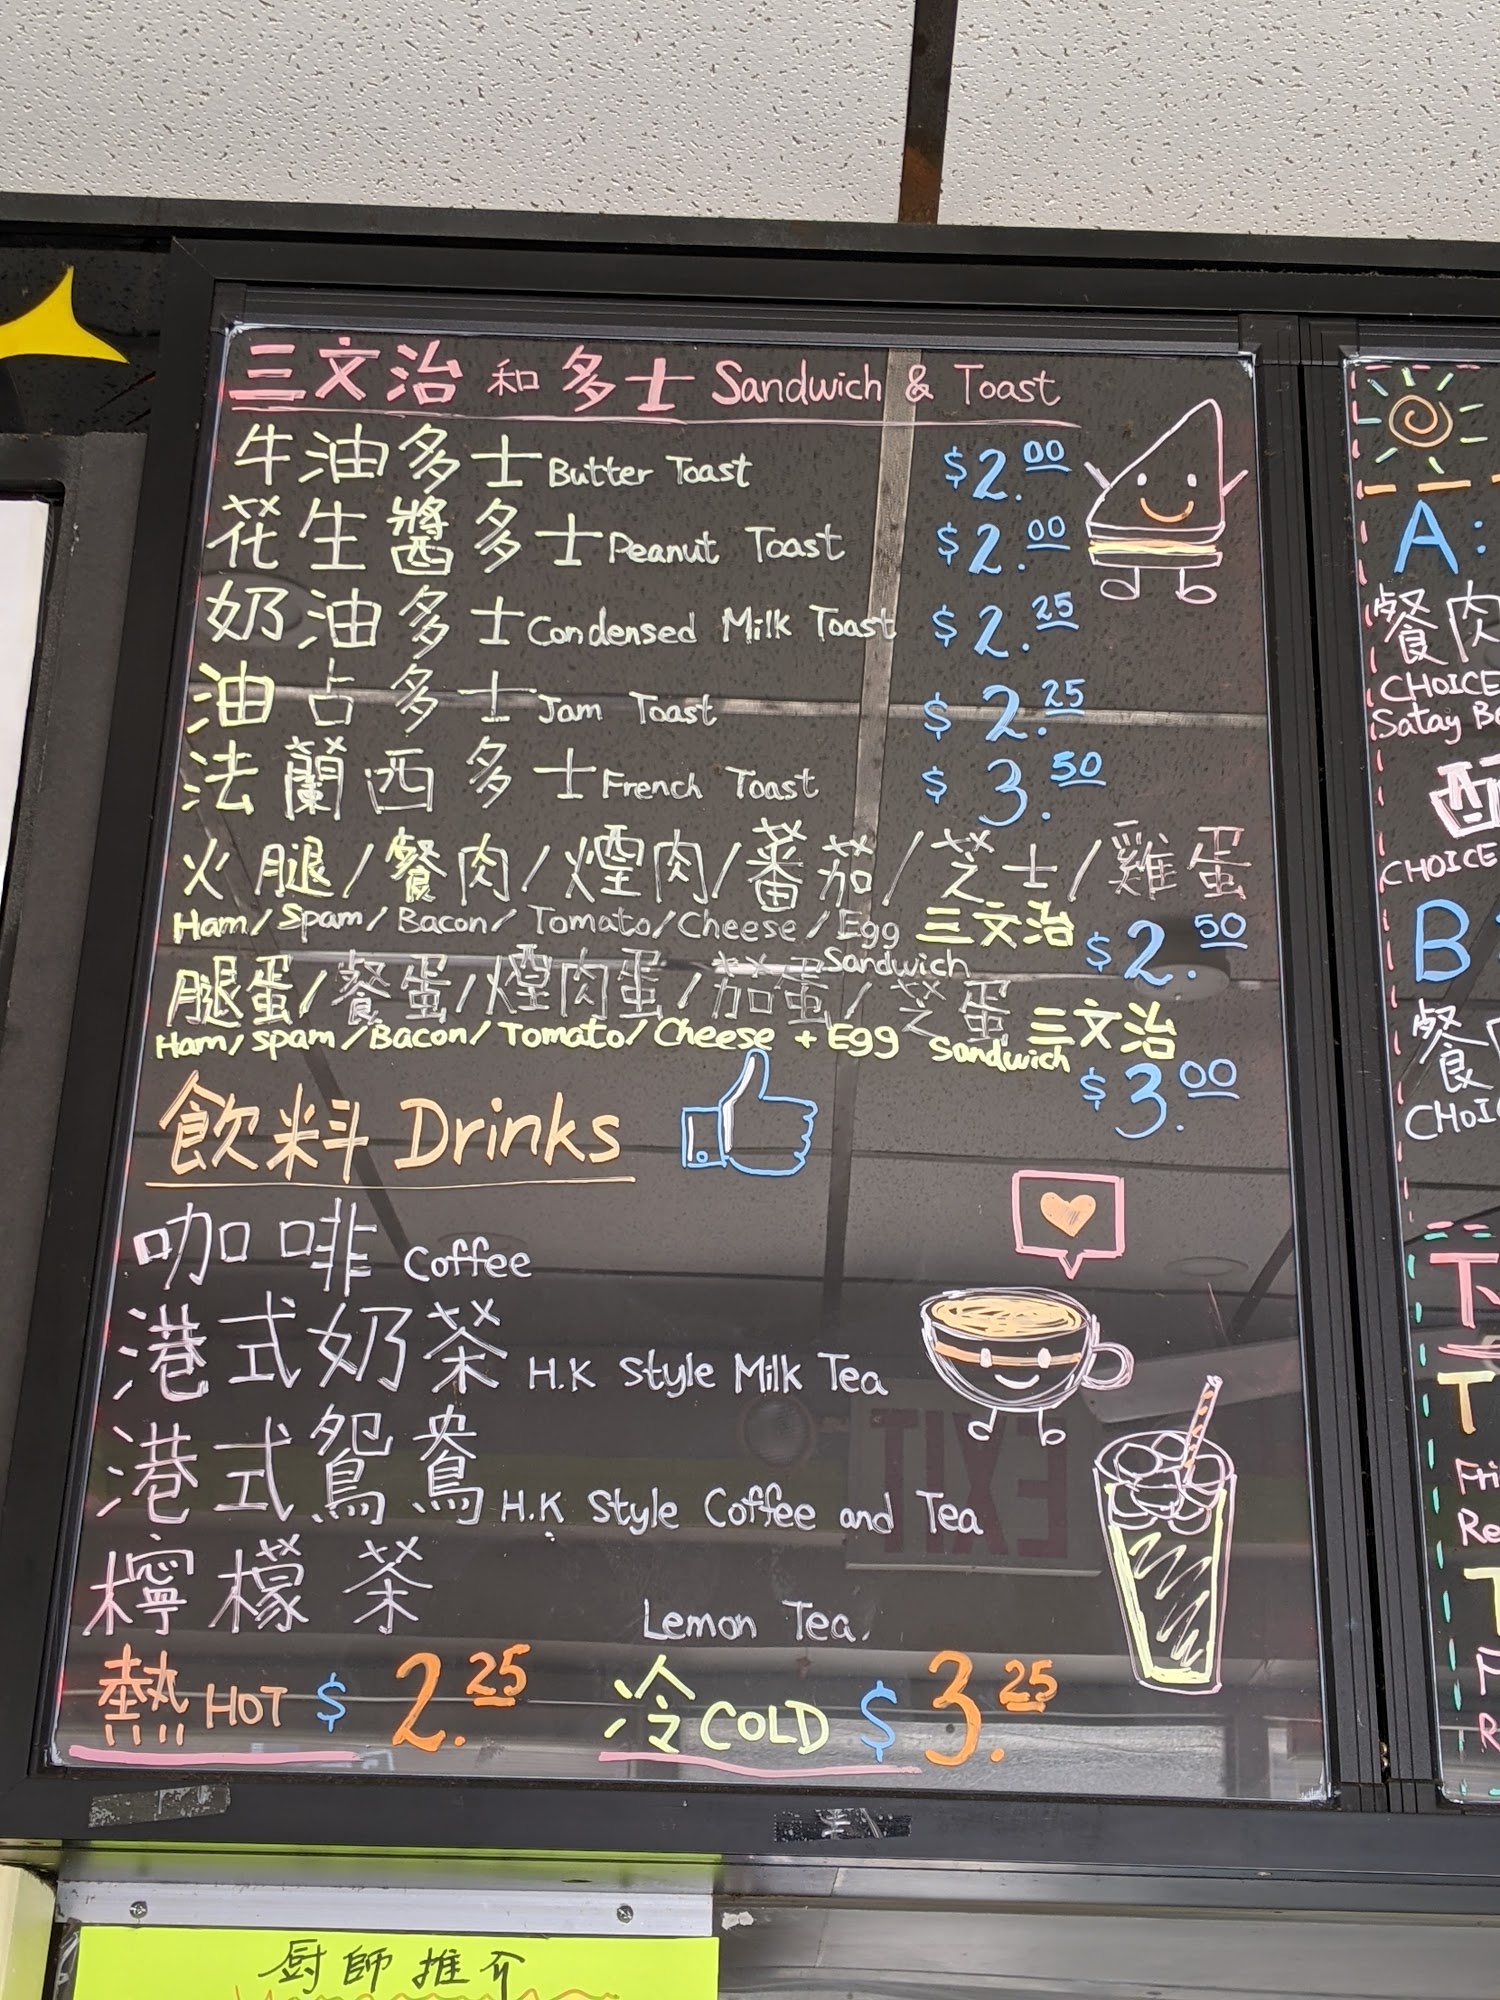 三文治 和 多士 Sandwich & Toast
牛油多士 Butter Toast $2.00
花生醬多士 Peanut Toast $2.00
奶油多士 Condensed Milk Toast $2.25
油占多士 Jam Toast $2.25
法蘭西多士 French Toast $3.50
火腿/餐肉/煙肉/蕃茄/芝士/雞蛋
Ham/Spam/Bacon/Tomato/Cheese/Egg 三文治 $2.50
Sandwich
腿蛋/餐蛋/煙肉蛋/茄蛋/芝蛋 三文治
Ham/Spam/Bacon/Tomato/Cheese + Egg Sandwich $3.00
飲料 Drinks
咖啡 Coffee
港式奶茶 H.K Style Milk Tea
港式鴛鴦 H.K Style Coffee and Tea
檸檬茶 Lemon Tea.
熱 HOT $2.25 冷 COLD $3.25
A:
餐肉
CHOICE
Satay
CHOICE
B
餐
T
T
EXIT
厨師推介